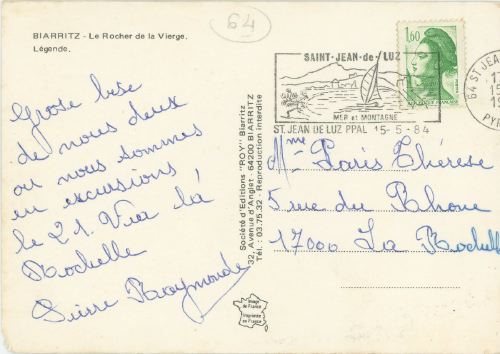 64
BIARRITZ - Le Rocher de la Vierge.
Légende.
1,60
SAINT-JEAN-de-LUZ
MER et MONTAGNE
ST. JEAN DE LUZ PPAL 15-5-84
64 ST. JEAN
15-
PY
Grosse bise
de nous deux
ou nous sommes
en excursions
le 21. Via là
Rochelle
Pierre Raymonde
Société d'Editions "ROY" Biarritz
32, Avenue d'Anglet 64200 BIARRITZ
Tél. : 03.75.32 - Reproduction interdite
Mme Paris Thérèse
5 rue du Rhone
17000 La Rochell
Image de France
Imprimée en France